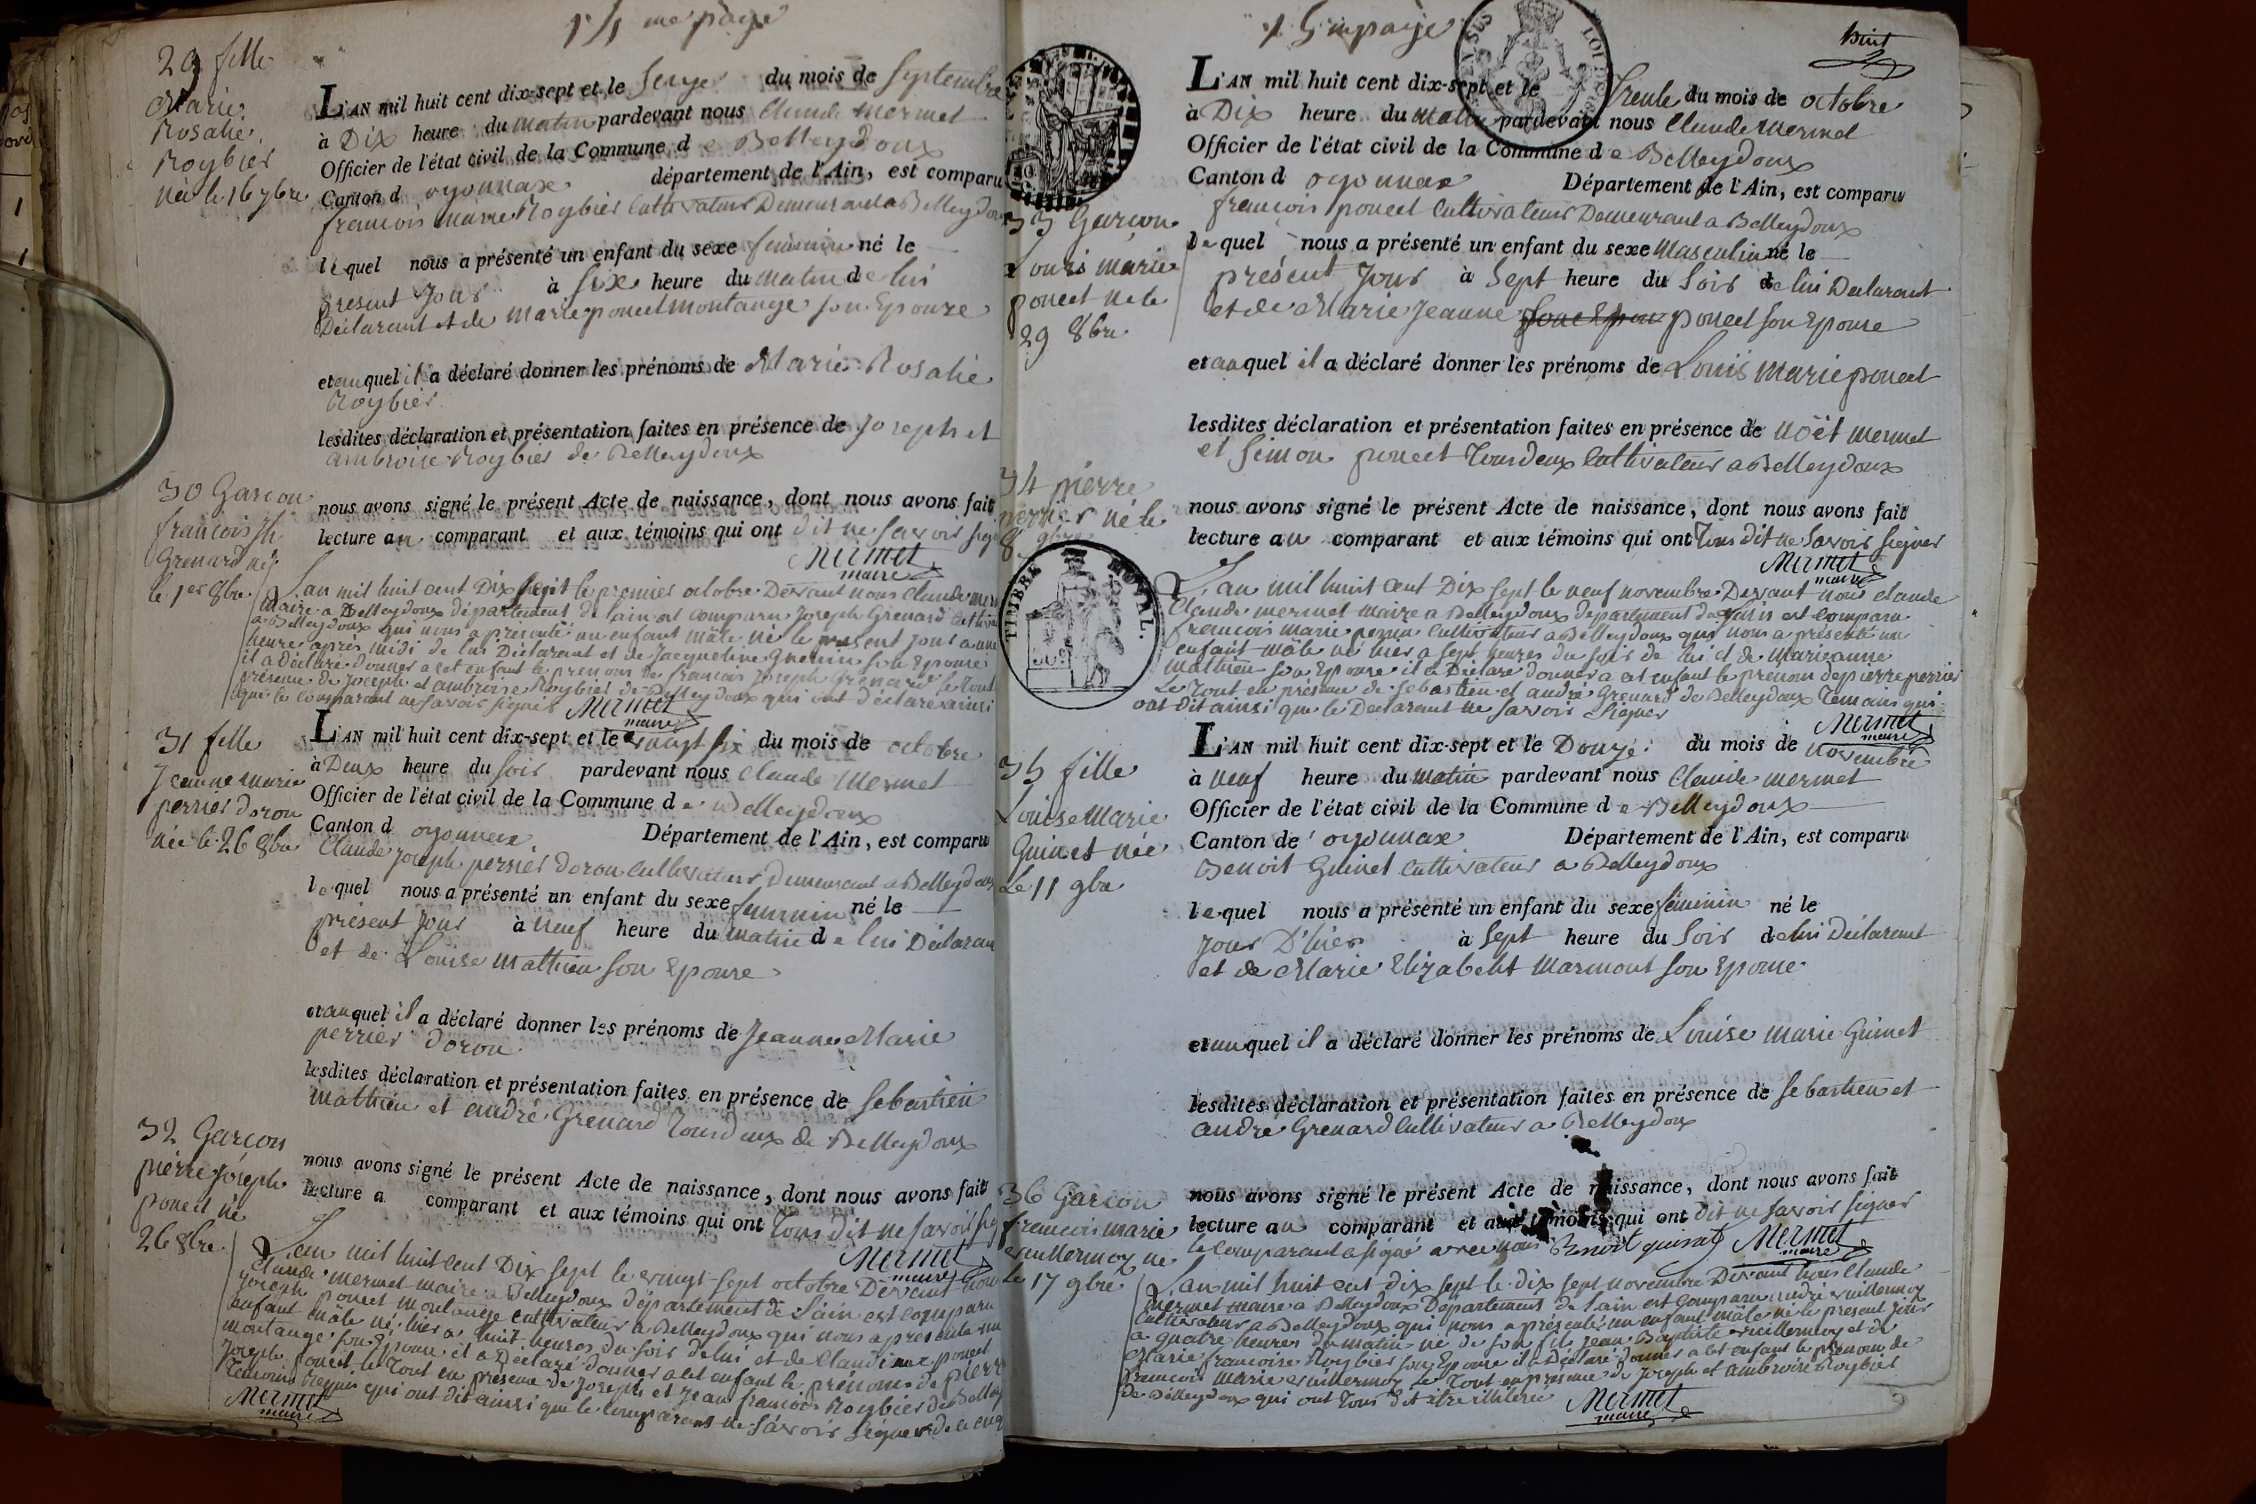 14 me page
29 fille
Marie
Rosalie
Roybier
née le 16 7bre
L'AN mil huit cent dix-sept et le Seize du mois de Septembre
à Dix heure du matin pardevant nous Claude Mermet
Officier de l'état civil de la Commune de Belleydoux
Canton d oyonnax département de l'Ain, est comparu
francois marie Roybier Cultivateur Demeurant a Belleydoux
lequel nous a présenté un enfant du sexe feminin né le
present Jour à Six heure du matin de lui
Déclarant et de Marie poncet montange son Epouze
et auquel il a déclaré donner les prénoms de Marie Rosalie
Roybier
lesdites déclaration et présentation faites en présence de Joseph et
ambroise Roybier de Belleydoux
nous avons signé le présent Acte de naissance, dont nous avons fait
lecture au comparant et aux témoins qui ont dit ne savoir sig
Mermet
maire
30 Garcon
francois Jh
Grenard né
le 1er 8bre
L'an mil huit cent Dix Sept le premier octobre Devant nous Claude mer
Maire a Belleydoux département de l'ain est comparu Joseph Grenard
a Belleydoux qui nous a presenté un enfant mâle né le present jour a une
heure après midi de lui Déclarant et de Jacqueline Guenin son Epouse
il a déclaré donner a cet enfant le prenoms de francois Joseph Grenard le Tout
présence de Joseph et ambroise Roybier de Belleydoux qui ont déclaré ainsi
que le Comparant ne savoir signer Mermet
maire
31 fille
Jeanne marie
perrier doron
née le 26 8bre
L'AN mil huit cent dix-sept et le vingt six du mois de octobre
à Deux heure du soir pardevant nous Claude Mermet
Officier de l'état civil de la Commune de Belleydoux
Canton d oyonnax Département de l'Ain, est comparu
Claude Joseph perrier doron Cultivateur Demeurant a Belleydoux
lequel nous a présenté un enfant du sexe feminin né le
présent Jour à neuf heure du matin de lui Déclaran
et de Louise Mathieu son Epouse
et auquel il a déclaré donner les prénoms de Jeanne Marie
perrier doron
lesdites déclaration et présentation faites en présence de Sebastien
Mathieu et andré Grenard Tous deux de Belleydoux
nous avons signé le présent Acte de naissance, dont nous avons fait
lecture a comparant et aux témoins qui ont Tous dit ne savoir sig
Mermet
maire
32 Garcon
pierre Joseph
poncet né
26 8bre
L'an mil huit cent Dix Sept le vingt-sept octobre Devant nous
Claude Mermet maire a Belleydoux département de l'ain est comparu
Joseph poncet montange cultivateur a Belleydoux qui nous a presenté un
enfant mâle né hier a huit heures du soir de lui et de Claudine poncet
montange son Epouse il a Déclaré donner a cet enfant le prénoms de pierr
Joseph poncet le Tout en présence de Joseph et Jean francois Roybier de Belley
Temoins Requis qui ont dit ainsi que le Comparant ne savoir signer de ce enq
Mermet
maire
15 me page
huit
L'AN mil huit cent dix-sept et le Trente du mois de octobre
à Dix heure du matin pardevant nous Claude Mermet
Officier de l'état civil de la Commune de Belleydoux
Canton d oyonnax Département de l'Ain, est comparu
francois poncet Cultivateur Demeurant a Belleydoux
lequel nous a présenté un enfant du sexe Masculin né le
présent Jour à Sept heure du Soir de lui Declarant
et de Marie Jeanne poncet son Epouse
et auquel il a déclaré donner les prénoms de Louis Marie poncet
lesdites déclaration et présentation faites en présence de Noël mermet
et Simon poncet Tous deux Cultivateur a Belleydoux
nous avons signé le présent Acte de naissance, dont nous avons fait
lecture au comparant et aux témoins qui ont Tous dit ne savoir signer
Mermet
maire
33 Garcon
Louis marie
poncet né le
29 8bre
34 pierre
perrier né le
8 9bre
TIMBRE ROYAL.
L'an mil huit cent Dix Sept le neuf novembre Devant nous claude
Claude mermet maire a Belleydoux departement de l'ain est comparu
francois marie perrier Cultivateur a Belleydoux qui nous a présenté un
enfant mâle né hier a sept heures du soir de lui et de marie anne
mathieu son Epouse il a Déclaré donner a cet enfant le prenom de pierre perrier
Le Tout en présence de Sebastien et andré Grenard de Belleydoux Temoins qui
ont dit ainsi que le Déclarant ne savoir signer
Mermet
maire
35 fille
Louise Marie
Guinet née
Le 11 9bre
L'AN mil huit cent dix-sept et le Douze du mois de Novembre
à neuf heure du matin pardevant nous Claude mermet
Officier de l'état civil de la Commune de Belleydoux
Canton de oyonnax Département de l'Ain, est comparu
Benoit Guinet Cultivateur a Belleydoux
lequel nous a présenté un enfant du sexe féminin né le
Jour D'hier à Sept heure du Soir de lui Déclarant
et de Marie Elizabeht Marmont son Epouse
et auquel il a déclaré donner les prénoms de Louise Marie Guinet
lesdites déclaration et présentation faites en présence de Sebastien et
andré Grenard Cultivateur a Belleydoux
nous avons signé le présent Acte de naissance, dont nous avons fait
lecture au comparant et aux témoins qui ont dit ne savoir signer
le Comparant a signé avec nous Benoit guinet Mermet
maire
36 Garcon
francois marie
vuillermoz né
Le 17 9bre
L'an mil huit cent dix sept le dix sept novembre Devant nous Claude
mermet maire a Belleydoux Département de l'ain est comparu andré vuillermoz
Cultivateur a Belleydoux qui nous a présenté un enfant mâle né le present jour
a quatre heures du matin né de son fils Jean Baptiste vuillermoz et de
Marie francoise Roybier son Epouse il a Déclaré donner a cet enfant le prénom de
francois Marie vuillermoz le Tout en présence de Joseph et ambroise Roybier
de Belleydoux qui ont Tous dit être illiteré Mermet
maire